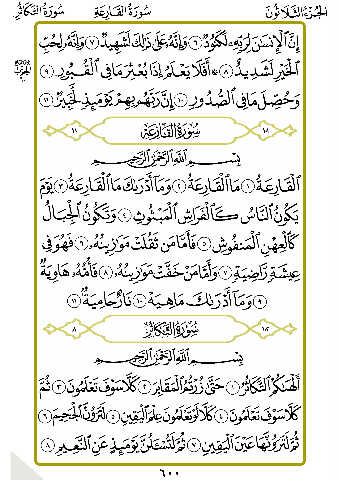 الجزء الثلاثون سورة القارعة سورة التكاثر
إِنَّ الْإِنسَٰنَ لِرَبِّهِۦ لَكَنُودٌ ٦ وَإِنَّهُۥ عَلَىٰ ذَٰلِكَ لَشَهِيدٌ ٧ وَإِنَّهُۥ لِحُبِّ
الْخَيْرِ لَشَدِيدٌ ٨ أَفَلَا يَعْلَمُ إِذَا بُعْثِرَ مَا فِي الْقُبُورِ ٩
وَحُصِّلَ مَا فِي الصُّدُورِ ١٠ إِنَّ رَبَّهُم بِهِمْ يَوْمَئِذٍ لَّخَبِيرٌ ١١
سورة القارعة
بِسْمِ اللَّهِ الرَّحْمَٰنِ الرَّحِيمِ
الْقَارِعَةُ ١ مَا الْقَارِعَةُ ٢ وَمَا أَدْرَىٰكَ مَا الْقَارِعَةُ ٣ يَوْمَ
يَكُونُ النَّاسُ كَالْفَرَاشِ الْمَبْثُوثِ ٤ وَتَكُونُ الْجِبَالُ
كَالْعِهْنِ الْمَنفُوشِ ٥ فَأَمَّا مَن ثَقُلَتْ مَوَٰزِينُهُۥ ٦ فَهُوَ فِي
عِيشَةٍ رَّاضِيَةٍ ٧ وَأَمَّا مَنْ خَفَّتْ مَوَٰزِينُهُۥ ٨ فَأُمُّهُۥ هَاوِيَةٌ
٩ وَمَا أَدْرَىٰكَ مَا هِيَهْ ١٠ نَارٌ حَامِيَةٌ ١١
سورة التكاثر ٨
بِسْمِ اللَّهِ الرَّحْمَٰنِ الرَّحِيمِ
أَلْهَىٰكُمُ التَّكَاثُرُ ١ حَتَّىٰ زُرْتُمُ الْمَقَابِرَ ٢ كَلَّا سَوْفَ تَعْلَمُونَ ٣ ثُمَّ
كَلَّا سَوْفَ تَعْلَمُونَ ٤ كَلَّا لَوْ تَعْلَمُونَ عِلْمَ الْيَقِينِ ٥ لَتَرَوُنَّ الْجَحِيمَ ٦
ثُمَّ لَتَرَوُنَّهَا عَيْنَ الْيَقِينِ ٧ ثُمَّ لَتُسْـَٔلُنَّ يَوْمَئِذٍ عَنِ النَّعِيمِ ٨
٦٠٠